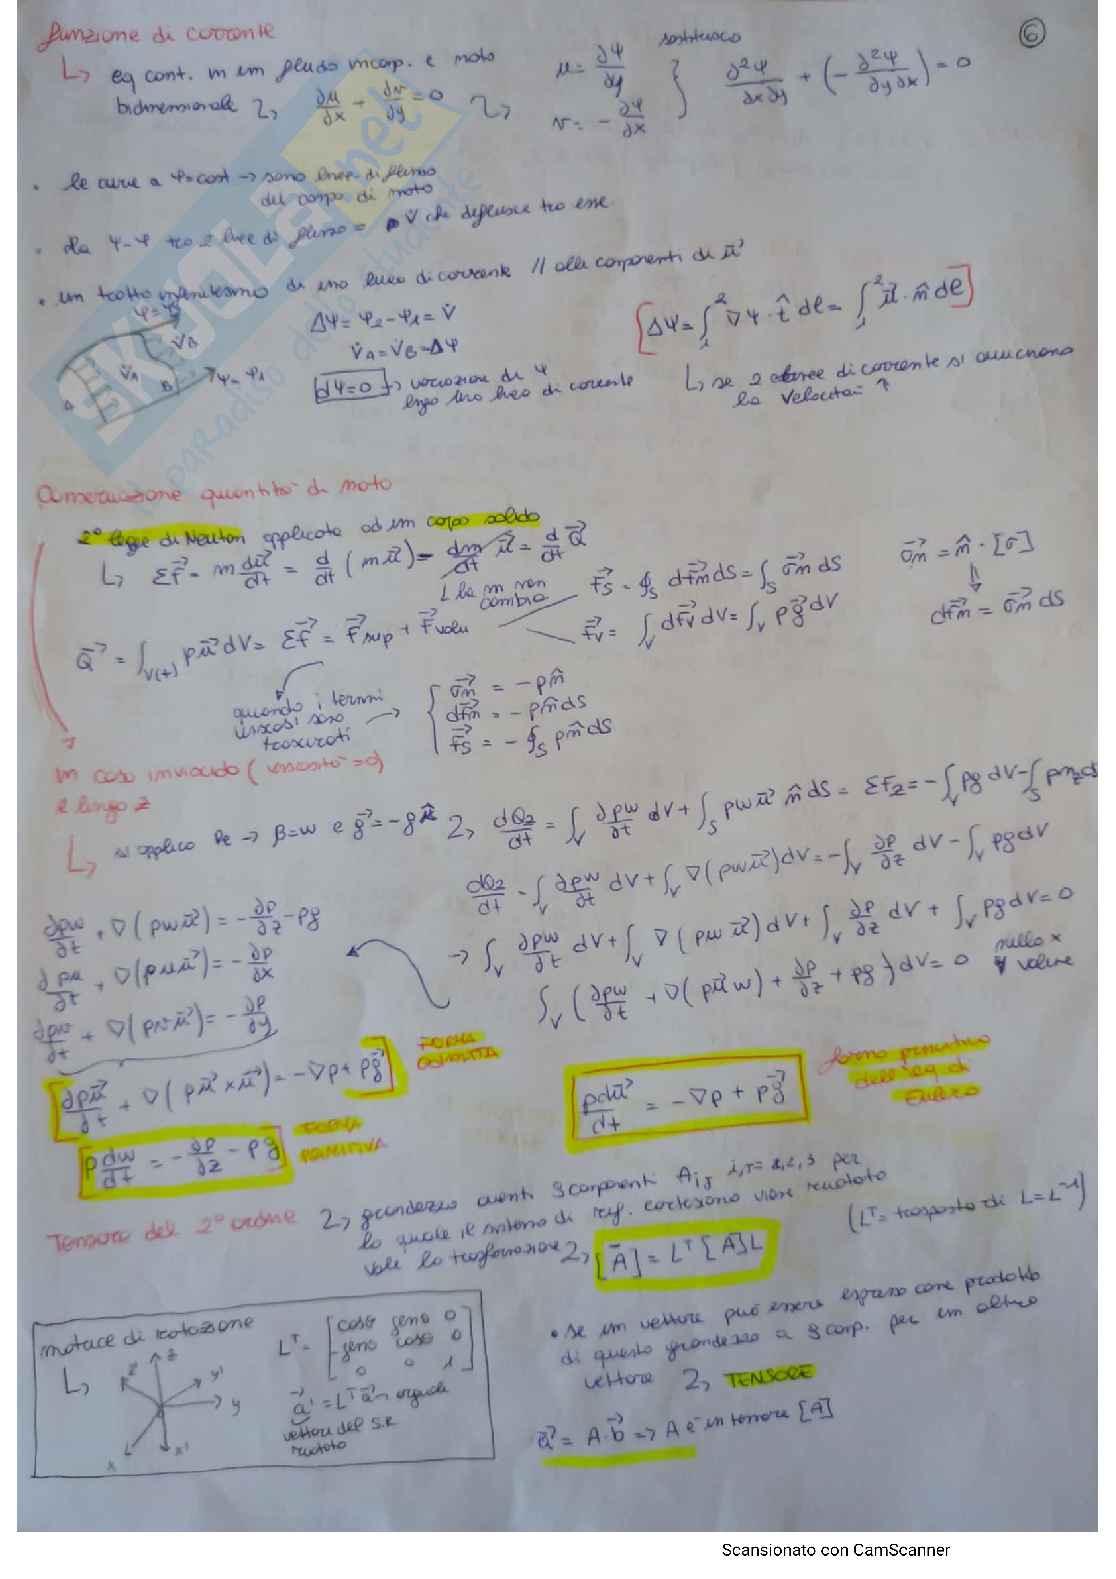 6
funzione di corrente
↳ eq cont. in un fluido incorp. e moto
bidimensionale → ∂u/∂x + ∂v/∂y = 0 → u = ∂ψ/∂y v = -∂ψ/∂x } sostituisco ∂²ψ/∂x∂y + (-∂²ψ/∂y∂x) = 0
• le curve a ψ=cost → sono linee di flusso
del campo di moto
• da ψ-ψ tra 2 linee di flusso = V̇ che defluisce tra esse
• un tratto infinitesimo di una linea di corrente // alle componenti di u⃗
V̇A V̇B A B ψ=ψ1
Δψ = ψ2 - ψ1 = V̇
V̇A = V̇B = Δψ
dψ=0 → variazione di ψ
lungo una linea di corrente
[Δψ = ∫₁² ∇ψ · t̂ dl = ∫₁² u⃗ · n̂ dl]
↳ se 2 linee di corrente si avvicinano
la velocità ↑
Conservazione quantità di moto
2° legge di Newton applicata ad un corpo solido
↳ Σf⃗ = m du⃗/dt = d/dt (mu⃗) - dm/dt u⃗ = d/dt Q⃗
↳ la m non
cambia
f⃗s = ∮s df⃗n dS = ∫s σ⃗n dS
σ⃗n = n̂ · [σ]
⇓
df⃗n = σ⃗n dS
Q⃗ = ∫V(t) ρu⃗ dV = Σf⃗ = F⃗sup + F⃗volu
f⃗v = ∫v df⃗v dV = ∫v ρg⃗ dV
quando i termini
viscosi sono
trascurati
→ { σ⃗n = -pn̂
df⃗n = -pn̂ dS
f⃗s = -∮s pn̂ dS
in caso inviscido (viscosità=0)
e lungo z
↳ si applico → β=w e g⃗=-gk̂ → dQz/dt = ∫v ∂ρw/∂t dV + ∫s ρwu⃗ n̂ dS = Σfz = -∫v ρg dV - ∫s pnz d
dQz/dt = ∫v ∂ρw/∂t dV + ∫v ∇(ρwu⃗) dV = -∫v ∂p/∂z dV - ∫v ρg dV
→ ∫v ∂ρw/∂t dV + ∫v ∇(ρwu⃗) dV + ∫v ∂p/∂z dV + ∫v ρg dV = 0
∫v (∂ρw/∂t + ∇(ρu⃗w) + ∂p/∂z + ρg) dV = 0 nullo x
∀ volume
∂ρw/∂t + ∇(ρwu⃗) = -∂p/∂z - ρg
∂ρu/∂t + ∇(ρuu⃗) = -∂p/∂x
∂ρv/∂t + ∇(ρvu⃗) = -∂p/∂y
[∂ρu⃗/∂t + ∇(ρu⃗×u⃗) = -∇p + ρg⃗]
[ρ dw/dt = -∂p/∂z - ρg] FORMA
PRIMITIVA
ρdu⃗/dt = -∇p + ρg⃗
forma primitiva
dell'eq di
Eulero
Tensore del 2° ordine → grandezza aventi 9 componenti Aij i,j=1,2,3 per
la quale il sistema di rif. cartesiano viene ruotato
vale la trasformazione → [Ā] = Lᵀ[A]L
(Lᵀ = trasposta di L = L⁻¹)
matrice di rotazione
↳ z' z y' y x x'
Lᵀ = [cosθ senθ 0
-senθ cosθ 0
0 0 1]
a⃗' = Lᵀa⃗
vettore del S.R.
ruotato
• se un vettore può essere espresso come prodotto
di questo grandezza a 9 comp. per un altro
vettore → TENSORE
a⃗ = A·b⃗ => A è un tensore [A]
Scansionato con CamScanner